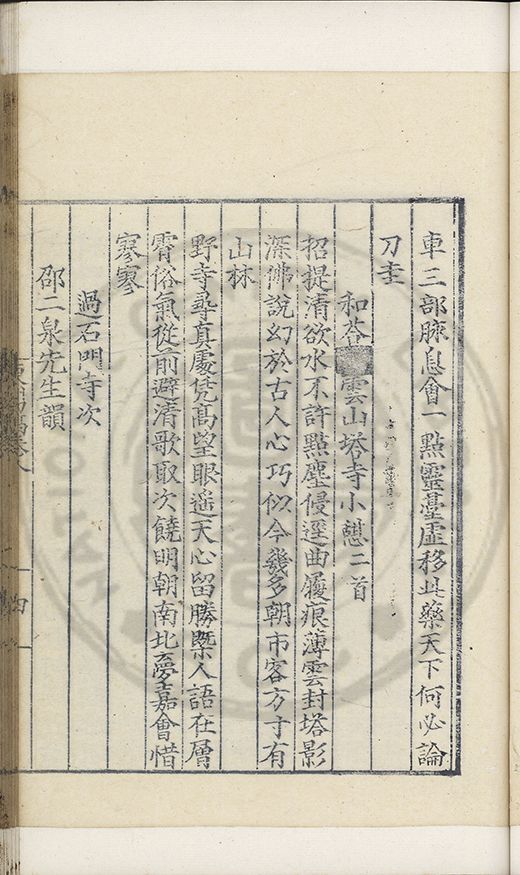 車三部脉息會一點靈臺虛移此藥天下何必論
刀圭
和荅雲山塔寺小憇二首
招提清欲水不許點塵侵逕曲履痕薄雲封塔影
深佛說幻於古人心巧似今幾多朝市客方寸有
山林
野寺尋真處凭高望眼遥天心留勝槩人語在層
霄俗氣從前避清歌取次饒明朝南北夢嘉會惜
寥寥
過石門寺次
邵二泉先生韻
四